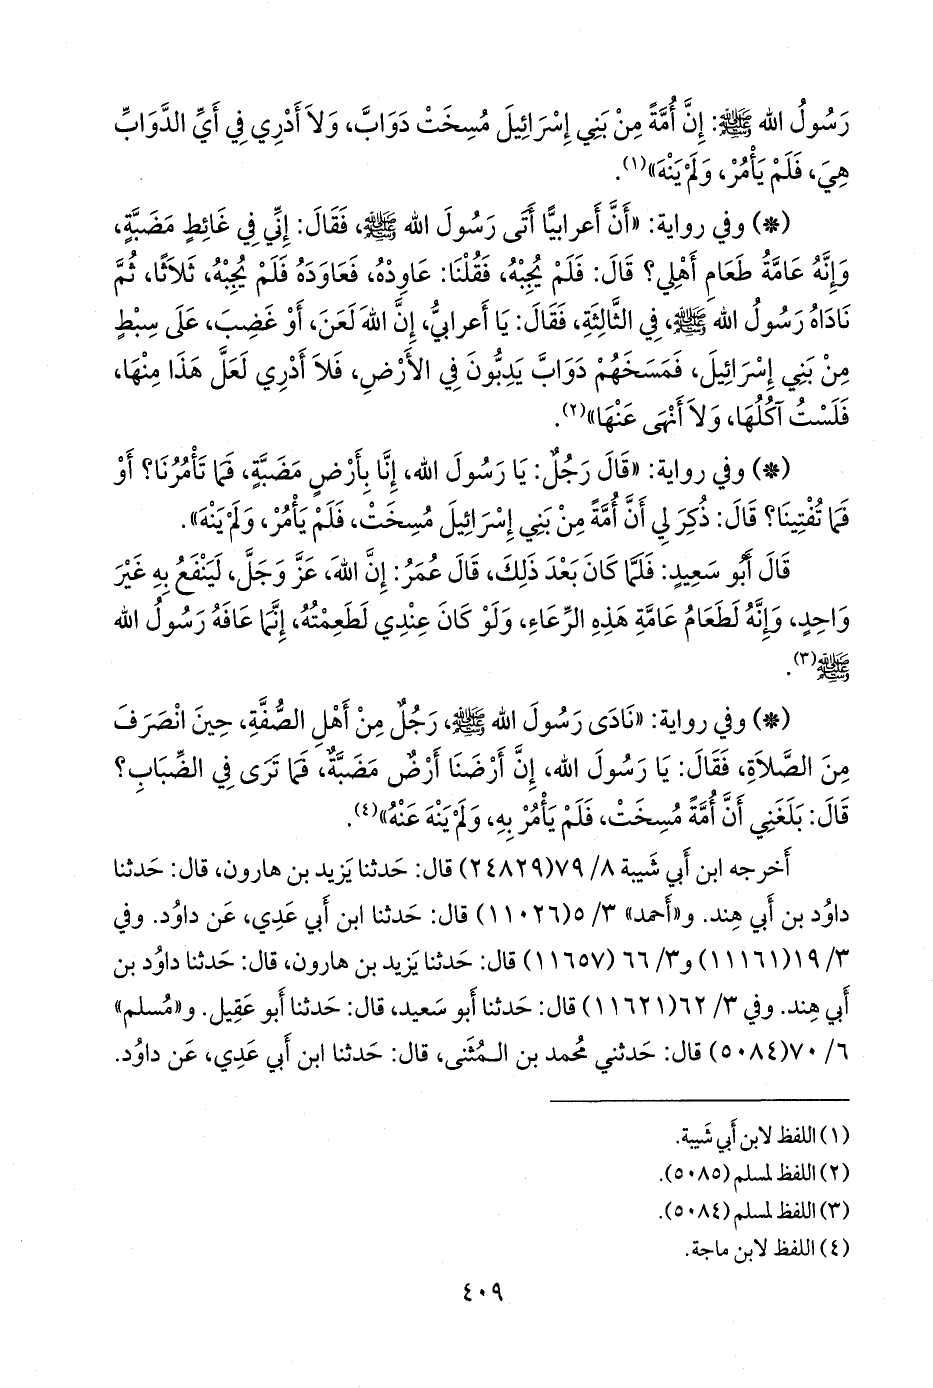 رَسُولُ الله ﷺ: إِنَّ أُمَّةً مِنْ بَنِي إِسْرَائِيلَ مُسِخَتْ دَوَابَّ، وَلاَ أَدْرِي فِي أَيِّ الدَّوَابِّ
هِيَ، فَلَمْ يَأْمُرْ، وَلَمْ يَنْهَ»(١).
(*) وفي رواية: «أَنَّ أَعرابيًّا أَتَى رَسُولَ الله ﷺ، فَقَالَ: إِنِّي فِي غَائِطٍ مَضَبَّةٍ،
وَإِنَّهُ عَامَّةُ طَعَامِ أَهْلِي؟ قَالَ: فَلَمْ يُجِبْهُ، فَقُلْنَا: عَاوِدْهُ، فَعَاوَدَهُ فَلَمْ يُجِبْهُ، ثَلاَثًا، ثُمَّ
نَادَاهُ رَسُولُ الله ﷺ، فِي الثَّالِثَةِ، فَقَالَ: يَا أَعرابيُّ، إِنَّ اللهَ لَعَنَ، أَوْ غَضِبَ، عَلَى سِبْطٍ
مِنْ بَنِي إِسْرَائِيلَ، فَمَسَخَهُمْ دَوَابَّ يَدِبُّونَ فِي الأَرْضِ، فَلاَ أَدْرِي لَعَلَّ هَذَا مِنْهَا،
فَلَسْتُ آكُلُهَا، وَلاَ أَنْهَى عَنْهَا»(٢).
(*) وفي رواية: «قَالَ رَجُلٌ: يَا رَسُولَ الله، إِنَّا بِأَرْضٍ مَضَبَّةٍ، فَمَا تَأْمُرُنَا؟ أَوْ
فَمَا تُفْتِينَا؟ قَالَ: ذُكِرَ لِي أَنَّ أُمَّةً مِنْ بَنِي إِسْرَائِيلَ مُسِخَتْ، فَلَمْ يَأْمُرْ، وَلَمْ يَنْهَ».
قَالَ أَبُو سَعِيدٍ: فَلَمَّا كَانَ بَعْدَ ذَلِكَ، قَالَ عُمَرُ: إِنَّ اللهَ، عَزَّ وَجَلَّ، لَيَنْفَعُ بِهِ غَيْرَ
وَاحِدٍ، وَإِنَّهُ لَطَعَامُ عَامَّةِ هَذِهِ الرِّعَاءِ، وَلَوْ كَانَ عِنْدِي لَطَعِمْتُهُ، إِنَّمَا عَافَهُ رَسُولُ الله
ﷺ(٣).
(*) وفي رواية: «نَادَى رَسُولَ الله ﷺ، رَجُلٌ مِنْ أَهْلِ الصُّفَّةِ، حِينَ انْصَرَفَ
مِنَ الصَّلاَةِ، فَقَالَ: يَا رَسُولَ الله، إِنَّ أَرْضَنَا أَرْضٌ مَضَبَّةٌ، فَمَا تَرَى فِي الضِّبَابِ؟
قَالَ: بَلَغَنِي أَنَّ أُمَّةً مُسِخَتْ، فَلَمْ يَأْمُرْ بِهِ، وَلَمْ يَنْهَ عَنْهُ»(٤).
أَخرجه ابن أَبي شَيبة ٨/ ٧٩(٢٤٨٢٩) قال: حَدثنا يَزيد بن هارون، قال: حَدثنا
داوُد بن أَبي هِند. و«أَحمد» ٣/ ٥(١١٠٢٦) قال: حَدثنا ابن أَبي عَدِي، عَن داوُد. وفي
٣/ ١٩(١١١٦١) و٣/ ٦٦ (١١٦٥٧) قال: حَدثنا يَزيد بن هارون، قال: حَدثنا داوُد بن
أَبي هِند. وفي ٣/ ٦٢(١١٦٢١) قال: حَدثنا أَبو سَعيد، قال: حَدثنا أَبو عَقِيل. و«مُسلم»
٦/ ٧٠(٥٠٨٤) قال: حَدثني مُحمد بن الـمُثَنى، قال: حَدثنا ابن أَبي عَدِي، عَن داوُد.
(١) اللفظ لابن أَبي شَيبة.
(٢) اللفظ لمسلم (٥٠٨٥).
(٣) اللفظ لمسلم (٥٠٨٤).
(٤) اللفظ لابن ماجة.
٤٠٩